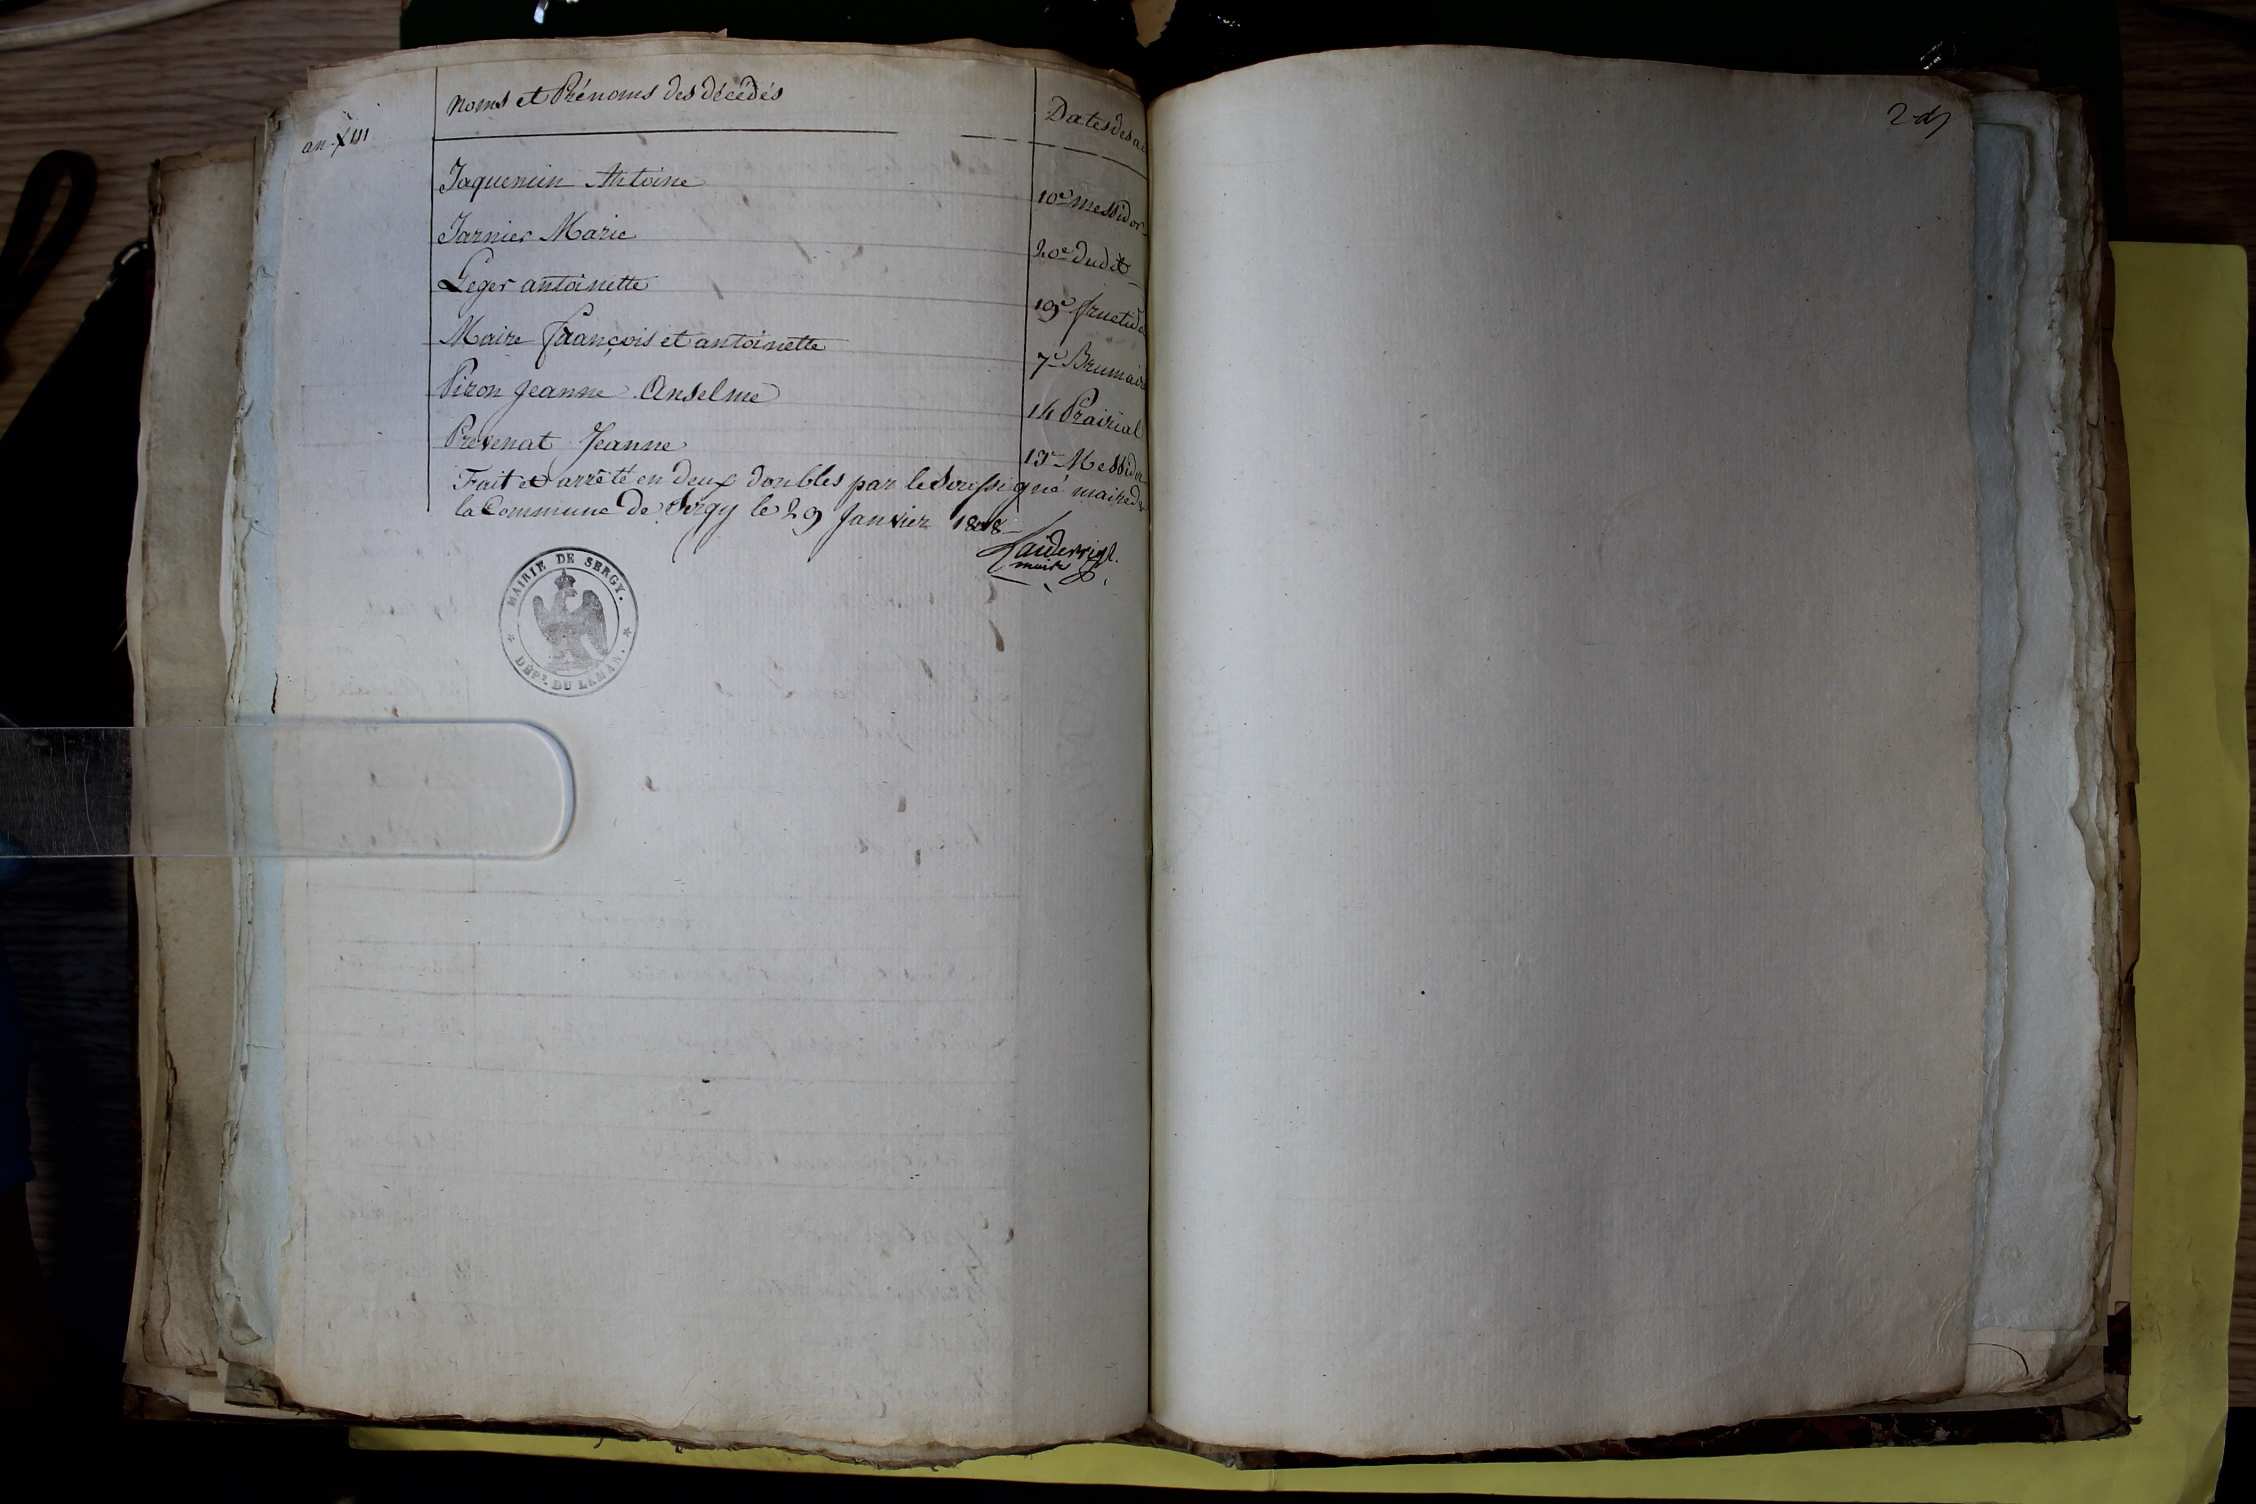 an XIII
Noms et Prénoms des décédés
Dates des ac
Jaquemin Antoine
10e Messidor
Jarnier Marie
20e dudit
Leger antoinette
19e fructid
Maire françois et antoinette
7e Brumair
Piron Jeanne Anselme
14 Prairial
Prevenat Jeanne
13e Messidor
Fait et arrêté en deux doubles par le Soussigné maire de
la Commune de Sergy le 29 Janvier 1808
maire
MAIRIE DE SERGY.
DÉPT. DU LÉMAN.